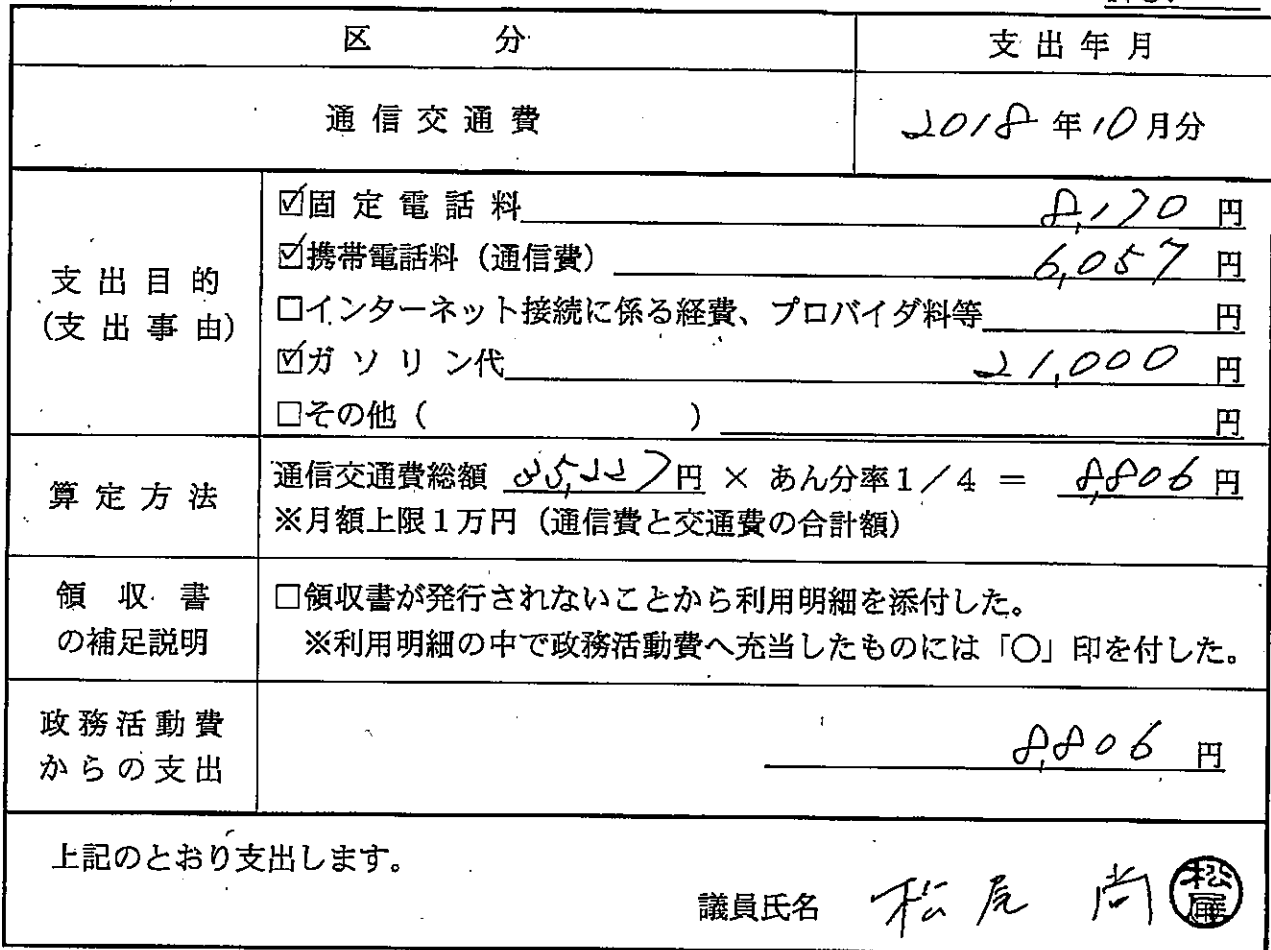 区分 支出年月
通信交通費 2018年10月分
支出目的
(支出事由)
☑固定電話料 8,170円
☑携帯電話料（通信費） 6,057円
□インターネット接続に係る経費、プロバイダ料等 円
☑ガソリン代 21,000円
□その他（ ） 円
算定方法
通信交通費総額 35,227円 × あん分率1／4 ＝ 8,806円
※月額上限1万円（通信費と交通費の合計額）
領収書
の補足説明
□領収書が発行されないことから利用明細を添付した。
※利用明細の中で政務活動費へ充当したものには「○」印を付した。
政務活動費
からの支出
8,806円
上記のとおり支出します。
議員氏名 松尾 尚 松尾